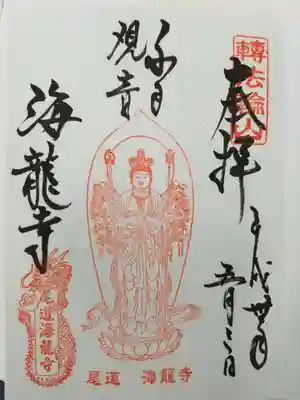 轉法輪山
奉拝
平成卅年
五月三日
千手
観音
海龍寺
尾道海龍寺
尾道 海龍寺